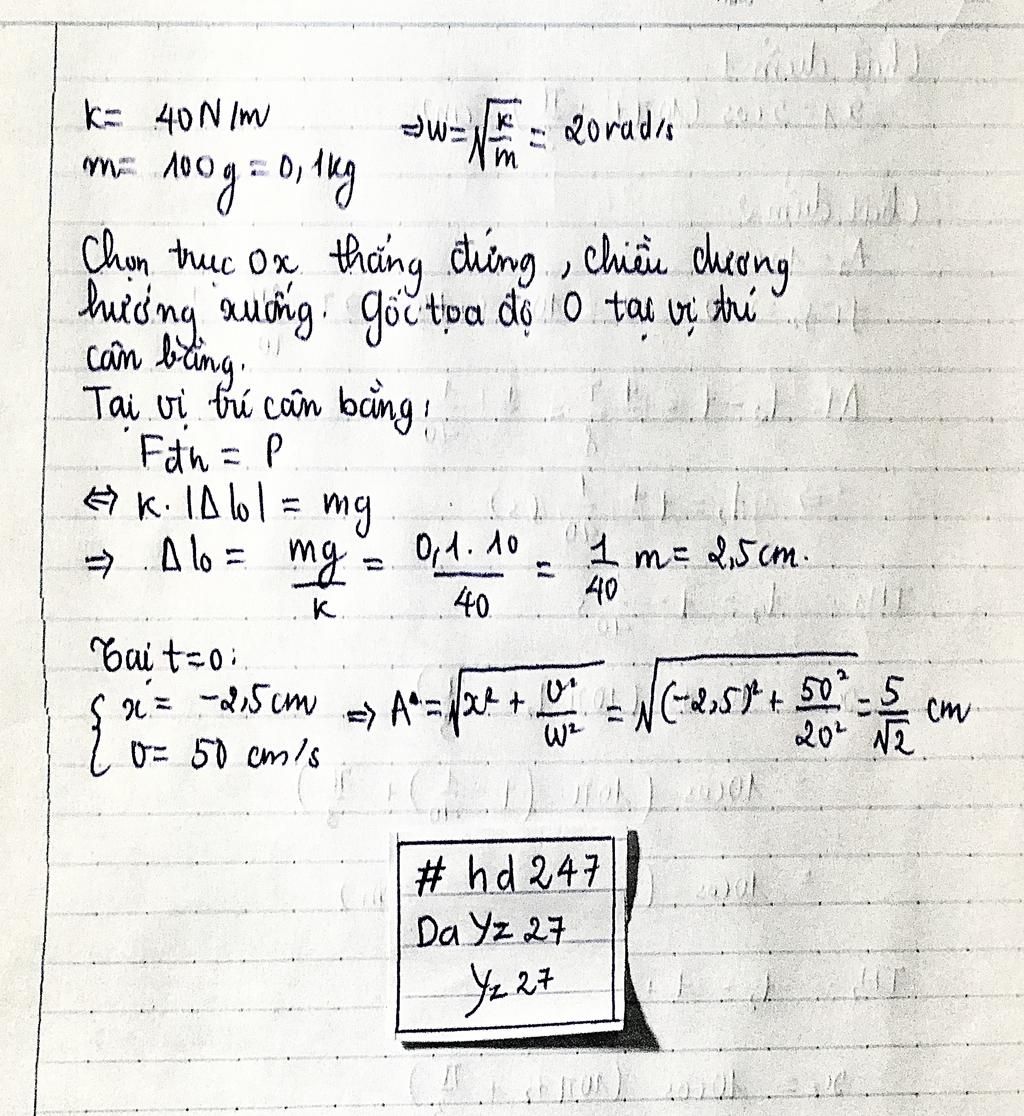 k= 40N/m ⇒ω=√(k/m) = 20rad/s
m= 100g = 0,1kg
Chọn trục Ox thẳng đứng, chiều dương
hướng xuống. Gốc tọa độ O tại vị trí
cân bằng.
Tại vị trí cân bằng:
Fđh = P
⇔ k.|Δl₀| = mg
⇒ Δl₀ = mg/k = 0,1.10/40 = 1/40 m = 2,5cm.
Tại t=0:
{ x = -2,5cm ⇒ A = √(x² + v²/ω²) = √((-2,5)² + 50²/20²) = 5/√2 cm
v= 50 cm/s
# hd247
Da Yz 27
Yz 27